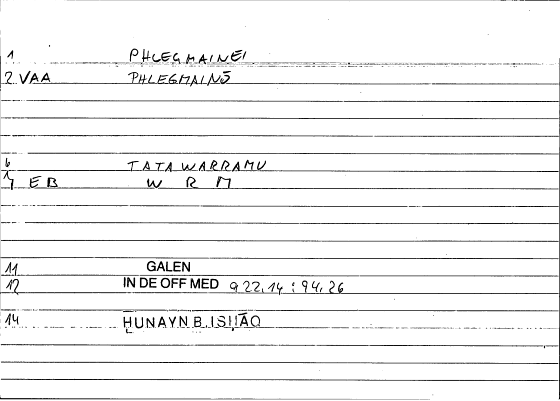 1 PHLEGMAINEI
2 VAA PHLEGMAINŌ
6 TATAWARRAMU
7 EB W R M
11 GALEN
12 IN DE OFF MED 922,14 : 94,26
14 ḤUNAYN B. ISḤĀQ